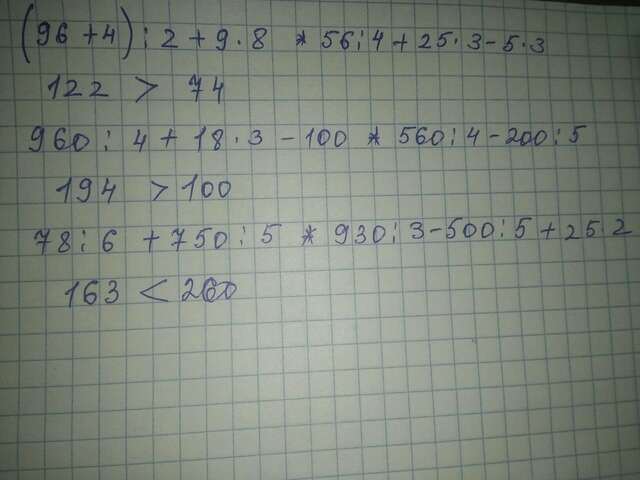 (96 + 4) : 2 + 9 · 8 * 56 : 4 + 25 · 3 - 5 · 3
122 > 74
960 : 4 + 18 · 3 - 100 * 560 : 4 - 200 : 5
194 > 100
78 : 6 + 750 : 5 * 930 : 3 - 500 : 5 + 25 · 2
163 < 260